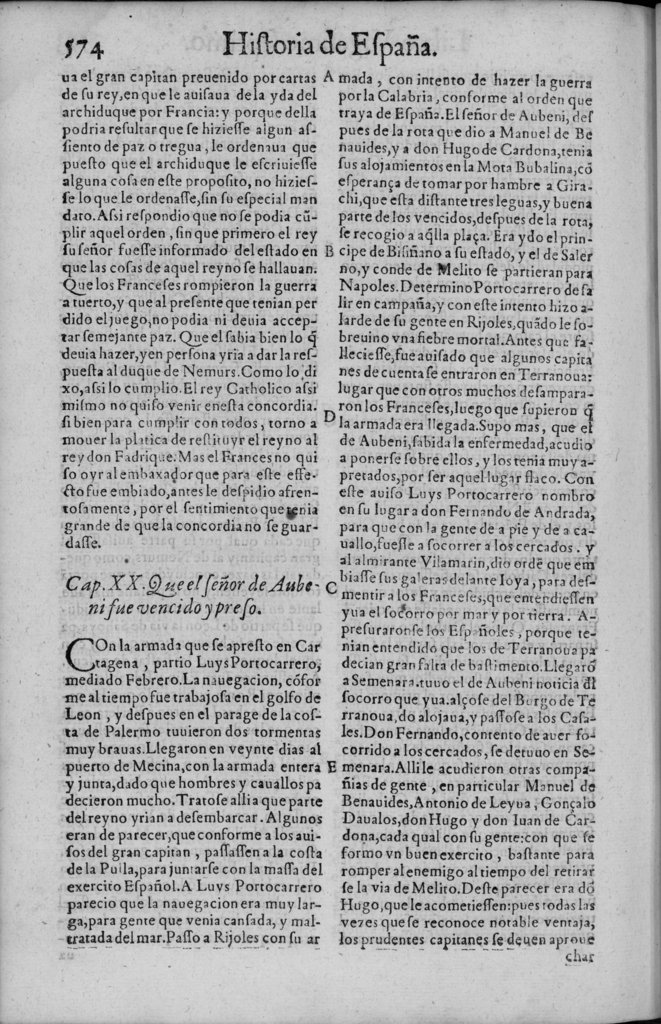 574 Historia de España.
ua el gran capitan preuenido por cartas
de su rey, en que le auisaua de la yda del
archiduque por Francia: y porque della
podria resultar que se hiziesse algun as-
siento de paz o tregua, le ordenaua que
puesto que el archiduque le escriuiesse
alguna cosa en este proposito, no hizies-
se lo que le ordenasse, sin su especial man
dato. Assi respondio que no se podia cũ-
plir aquel orden, sin que primero el rey
su señor fuesse informado del estado en
que las cosas de aquel reyno se hallauan.
Que los Franceses rompieron la guerra
a tuerto, y que al presente que tenian per
dido el juego, no podia ni deuia accep-
tar semejante paz. Que el sabia bien lo q̃
deuia hazer, y en persona yria a dar la res-
puesta al duque de Nemurs. Como lo di
xo, assi lo cumplio. El rey Catholico assi
mismo no quiso venir en esta concordia.
si bien para cumplir con todos, torno a
mouer la platica de restituyr el reyno al
rey don Fadrique. Mas el Frances no qui
so oyr al embaxador que para este effe-
cto fue embiado, antes le despidio afren-
tosamente, por el sentimiento que tenia
grande de que la concordia no se guar-
dasse.
Cap. XX. Que el señor de Aube-
ni fue vencido y preso.
COn la armada que se apresto en Car
tagena, partio Luys Portocarrero,
mediado Febrero. La nauegacion, cõfor
me al tiempo fue trabajosa en el golfo de
Leon, y despues en el parage de la cos-
ta de Palermo tuuieron dos tormentas
muy brauas. Llegaron en veynte dias al
puerto de Mecina, con la armada entera
y junta, dado que hombres y cauallos pa
decieron mucho. Tratose alli a que parte
del reyno yrian a desembarcar. Algunos
eran de parecer, que conforme a los aui-
sos del gran capitan, passassen a la costa
de la Pulla, para juntarse con la massa del
exercito Español. A Luys Portocarrero
parecio que la nauegacion era muy lar-
ga, para gente que venia cansada, y mal-
tratada del mar. Passo a Rijoles con su ar
A
B
D
C
E
mada, con intento de hazer la guerra
por la Calabria, conforme al orden que
traya de España. El señor de Aubeni, des
pues de la rota que dio a Manuel de Be
nauides, y a don Hugo de Cardona, tenia
sus alojamientos en la Mota Bubalina, cõ
esperança de tomar por hambre a Gira-
chi, que esta distante tres leguas, y buena
parte de los vencidos, despues de la rota,
se recogio a aq̃lla plaça. Era ydo el prin-
cipe de Bisiñano a su estado, y el de Saler
no, y conde de Melito se partieran para
Napoles. Determino Portocarrero de sa
lir en campaña, y con este intento hizo a-
larde de su gente en Rijoles, quãdo le so-
breuino vna fiebre mortal. Antes que fa-
lleciesse, fue auisado que algunos capita
nes de cuenta se entraron en Terranoua:
lugar que con otros muchos desampara-
ron los Franceses, luego que supieron q̃
la armada era llegada. Supo mas, que el
de Aubeni, sabida la enfermedad, acudio
a ponerse sobre ellos, y los tenia muy a-
pretados, por ser aquel lugar flaco. Con
este auiso Luys Portocarrero nombro
en su lugar a don Fernando de Andrada,
para que con la gente de a pie y de a ca-
uallo, fuesse a socorrer a los cercados. y
al almirante Vilamarin, dio ordẽ que em
biasse sus galeras delante Ioya, para des-
mentir a los Franceses, que entendiessen
yua el socorro por mar y por tierra. A-
presuraronse los Españoles, porque te-
nian entendido que los de Terranoua pa
decian gran falta de bastimento. Llegarõ
a Semenara. tuuo el de Aubeni noticia dl̃
socorro que yua. alçose del Burgo de Te
rranoua, do alojaua, y passose a los Casa-
les. Don Fernando, contento de auer so-
corrido a los cercados, se detuuo en Se-
menara. Alli le acudieron otras compa-
ñias de gente, en particular Manuel de
Benauides, Antonio de Leyua, Gonçalo
Daualos, don Hugo y don Iuan de Car-
dona, cada qual con su gente: con que se
formo vn buen exercito, bastante para
romper al enemigo al tiempo del retirar
se la via de Melito. Deste parecer era dõ
Hugo, que le acometiessen: pues todas las
vezes que se reconoce notable ventaja,
los prudentes capitanes se deuen aproue
char